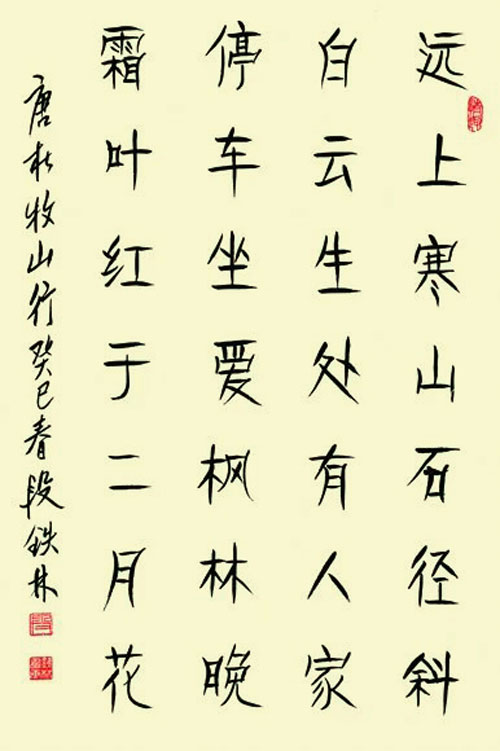 远上寒山石径斜
白云生处有人家
停车坐爱枫林晚
霜叶红于二月花
唐杜牧山行癸巳春段铁林